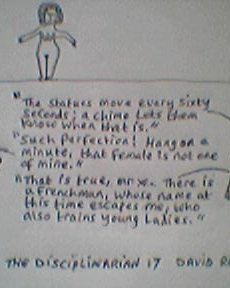 "The statues move every sixty
seconds; a chime lets them
know when that is."
"Such perfection! Hang on a
minute, that female is not one
of mine."
"That is true, Mr x. There is
a Frenchman, whose name at
this time escapes me, who
also trains young ladies."
THE DISCIPLINARIAN 17 DAVID